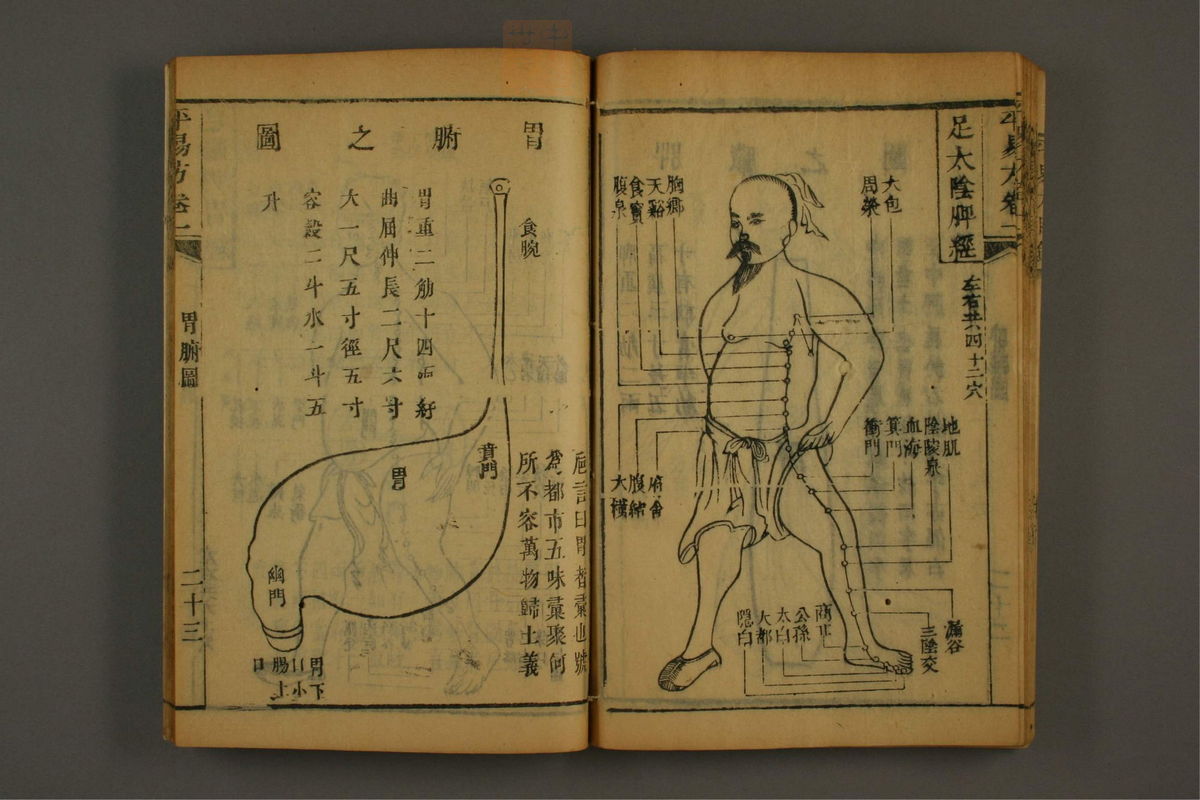 足太陰脾經
左右共四十二穴
大包
周榮
胸鄉
天谿
食竇
腹泉
地肌
陰陵泉
血海
箕門
衝門
府舍
腹結
大橫
漏谷
三陰交
商丘
公孫
太白
大都
隱白
胃腑之圖
食脘
胃重二觔十四兩紆
曲屈伸長二尺六寸
大一尺五寸徑五寸
容穀二斗水一斗五
升
賁門
胃
幽門
胃下
口小
腸上
口
巵言曰胃者彚也號
為都市五味彚聚何
所不容萬物歸土義
平易方卷一
胃腑圖
二十三